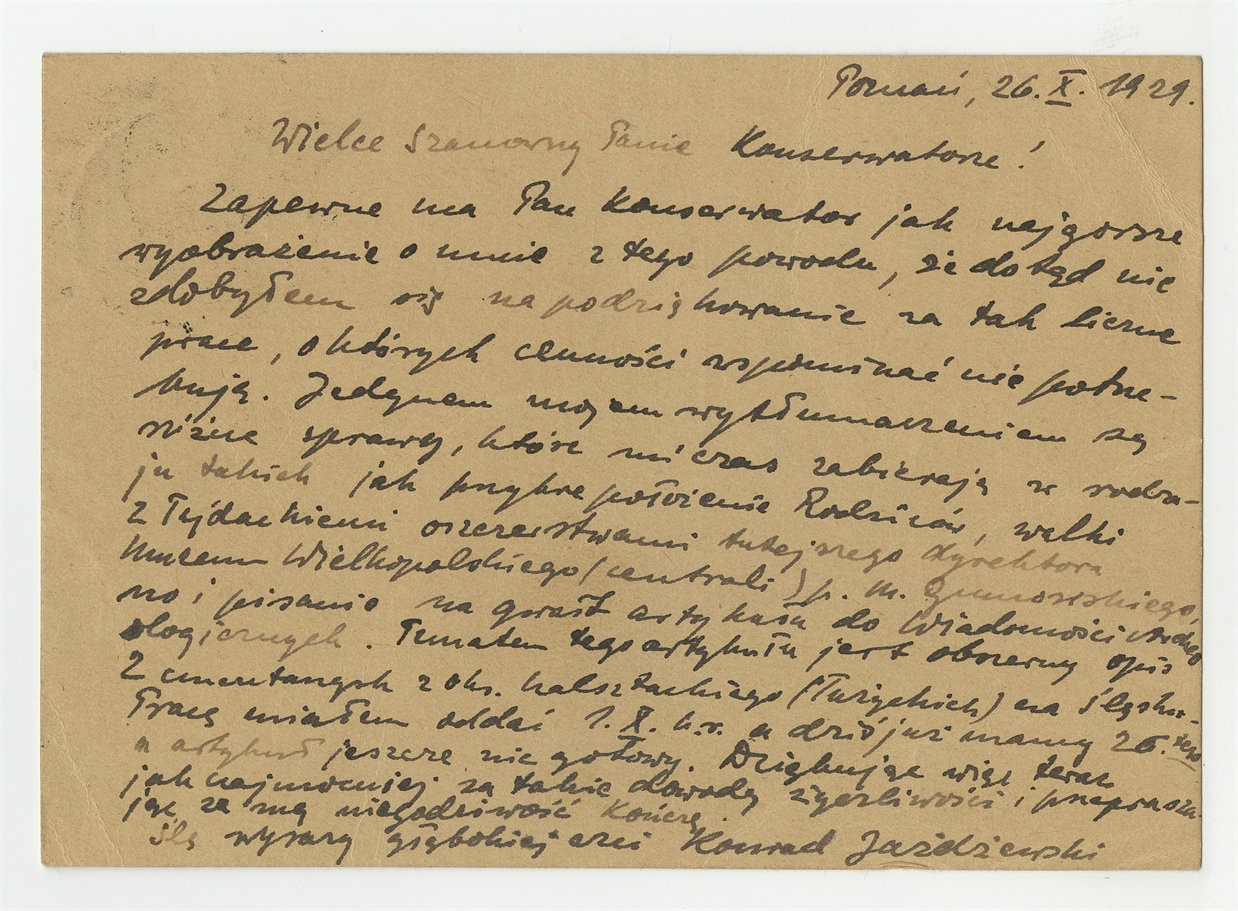 Poznań, 26. X. 1929.
Wielce Szanowny Panie Konserwatorze!
Zapewne ma Pan Konserwator jak najgorsze
wyobrażenie o mnie z tego powodu, że dotąd nie
zdobyłem się na podziękowanie za tak liczne
prace, o których cenności wspominać nie potrze-
buję. Jedynem mojem wytłumaczeniem są
różne sprawy, które mi czas zabierają w rodza-
ju takich jak przykre położenie Rodziców, walki
z łajdackiemi oszczerstwami tutejszego dyrektora
Muzeum Wielkopolskiego (centrali) p. M. Gumowskiego,
no i pisanie na gwałt artykułu do Wiadomości Archeo
ologicznych. Tematem tego artykułu jest obszerny opis
2 cmentarzysk z ok. halsztackiego (Łużyckich) na Śląsku.
Pracę miałem oddać 1. X. b.r. a dziś już mamy 26. tego
a artykuł jeszcze nie gotowy. Dziękując więc teraz
jak najmocniej za takie dowody życzliwości i przeprasza-
jąc za mą niegodziwość kończę.
Ślę wyrazy głębokiej czci Konrad Jażdżewski